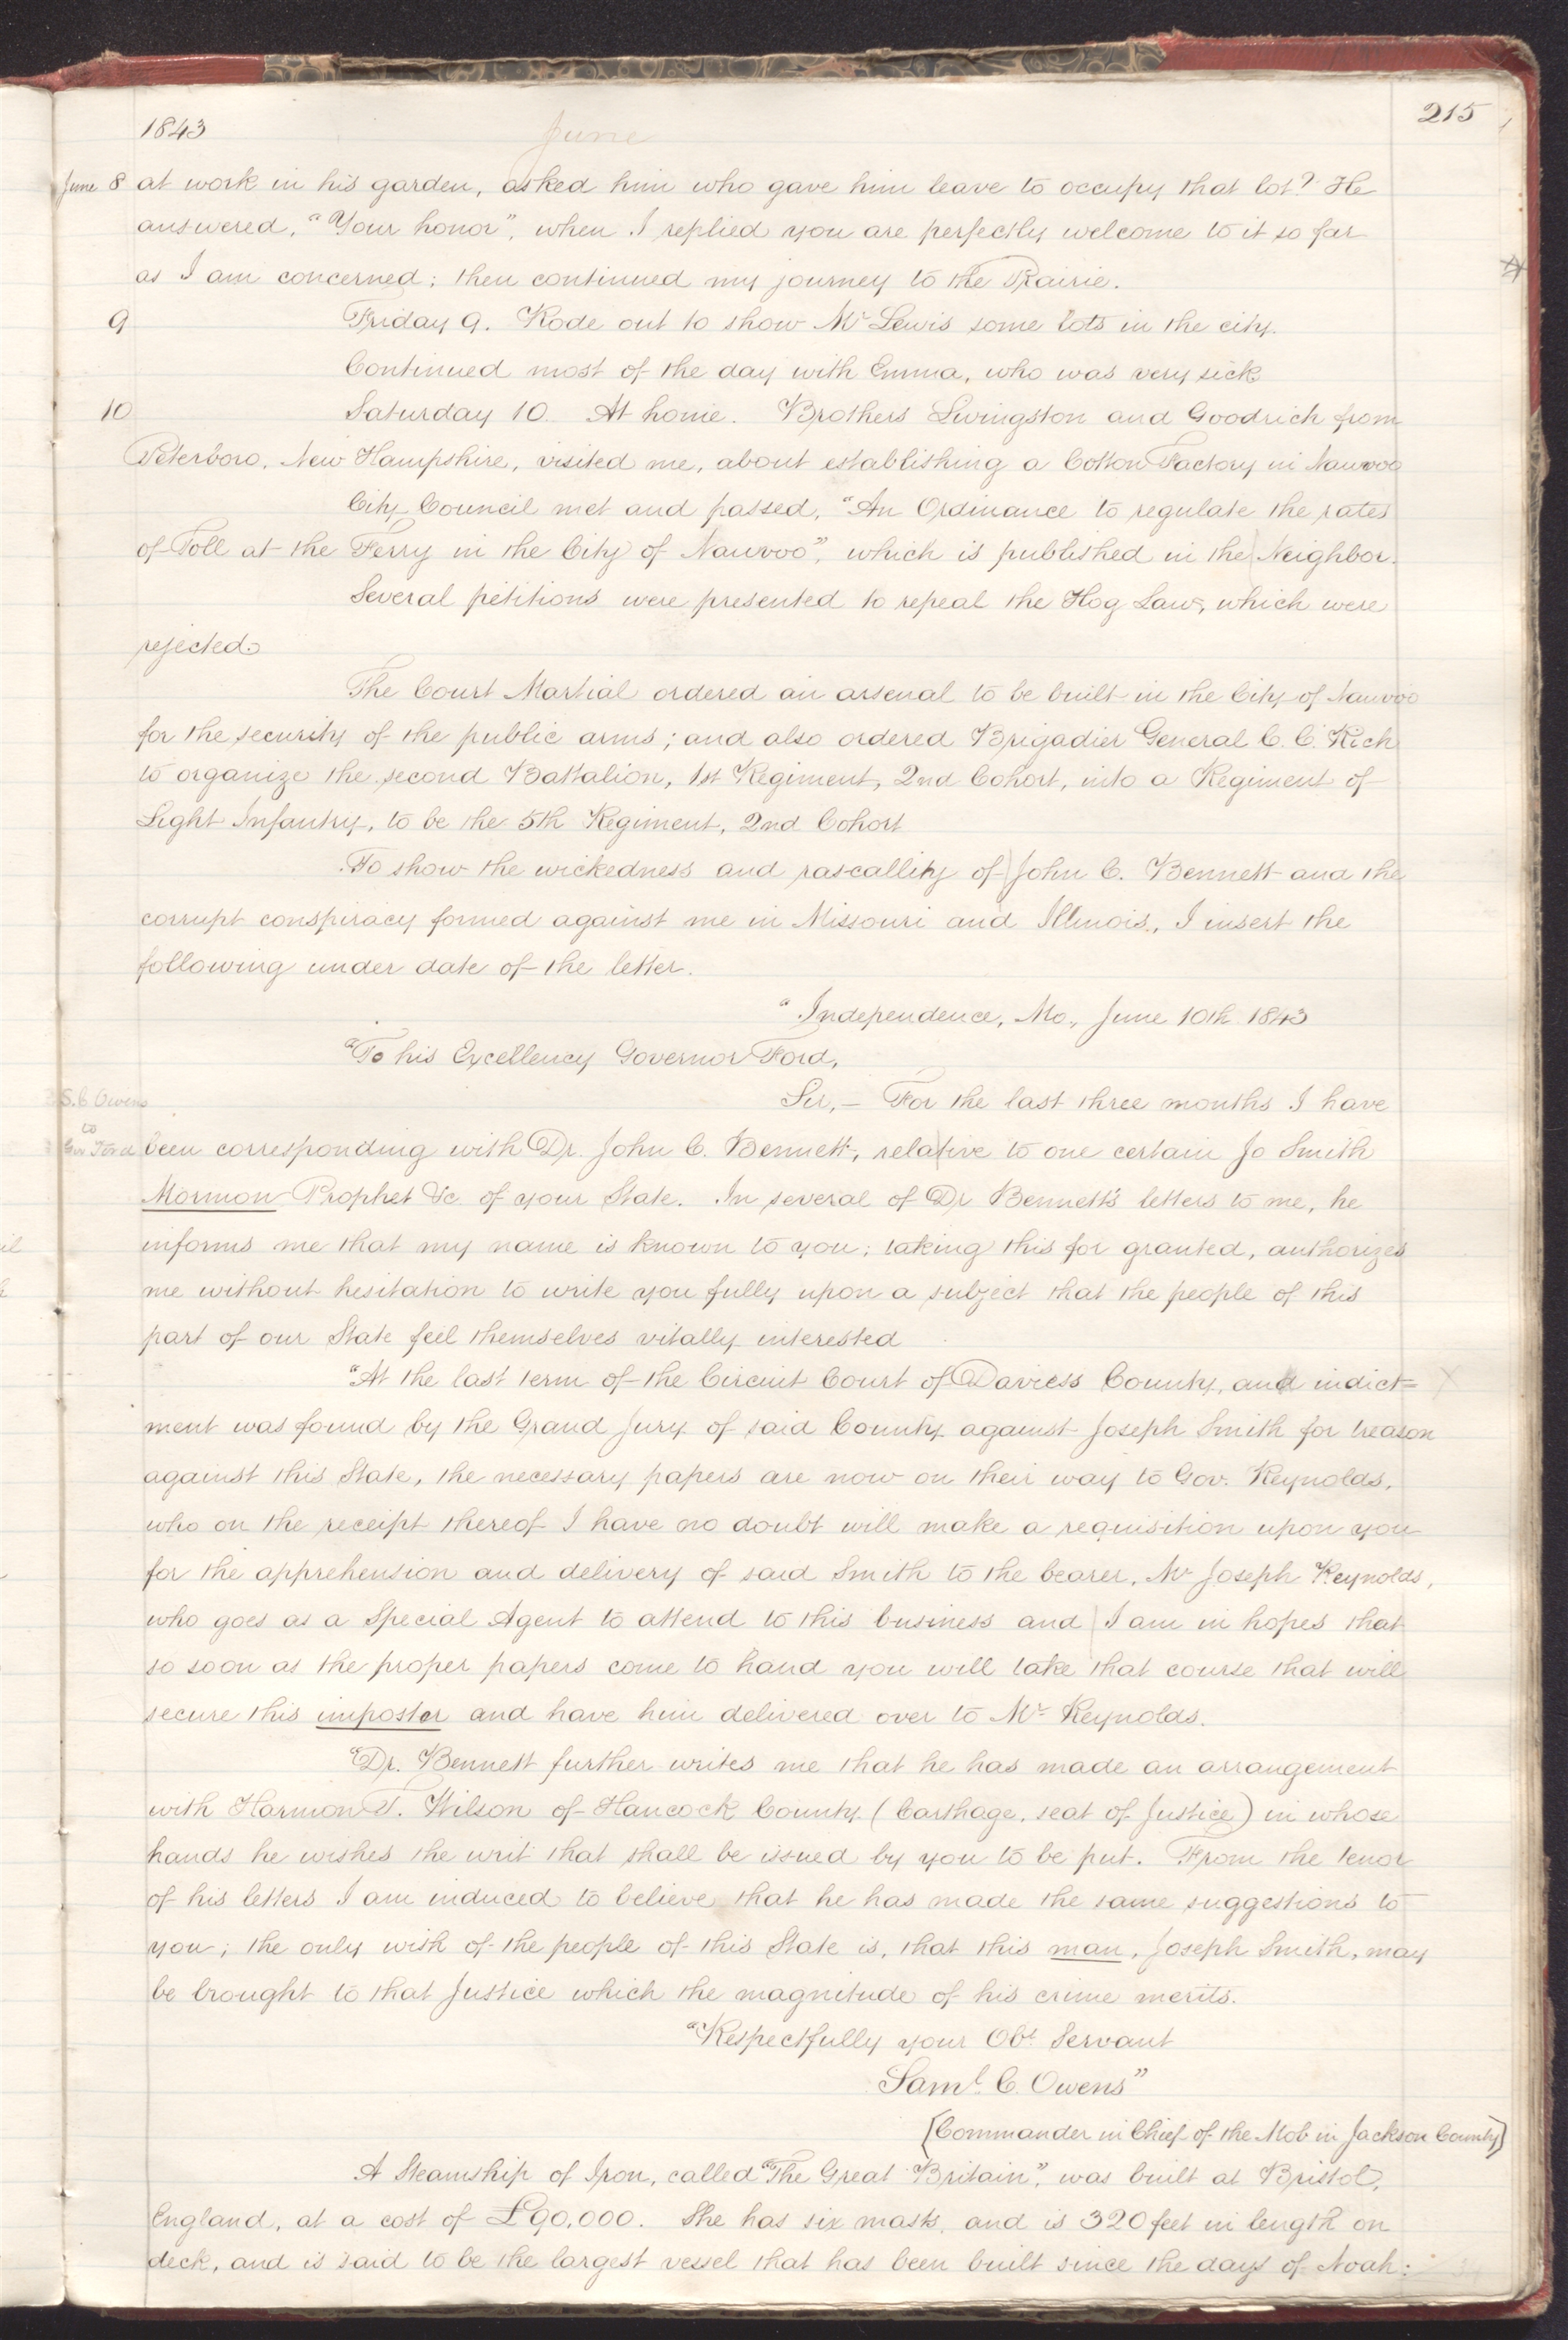 215
1843
June
June 8 at work in his garden, asked him who gave him leave to occupy that lot? He
answered, "Your honor", when I replied you are perfectly welcome to it so far
as I am concerned; then continued my journey to the Prairie.
9 Friday 9. Rode out to show Mr Lewis some lots in the city.
Continued most of the day with Emma, who was very sick
10 Saturday 10. At home. Brothers Livingston and Goodrich from
Peterboro, New Hampshire, visited me, about establishing a Cotton Factory in Nauvoo
City Council met and passed, "An Ordinance to regulate the rates
of Toll at the Ferry in the City of Nauvoo", which is published in the Neighbor.
Several petitions were presented to repeal the Hog Law, which were
rejected.
The Court Martial ordered an arsenal to be built in the City of Nauvoo
for the security of the public arms; and also ordered Brigadier General C. C. Rich
to organize the second Battalion, 1st Regiment, 2nd Cohort, into a Regiment of
Light Infantry, to be the 5th Regiment, 2nd Cohort
To show the wickedness and rascallity of John C. Bennett and the
corrupt conspiracy formed against me in Missouri and Illinois, I insert the
following under date of the letter.
"Independence, Mo., June 10th 1843
"To his Excellency Governor Ford,
S. C Owens
Sir,— For the last three months I have
to
Gov Ford been corresponding with Dr. John C. Bennett, relative to one certain Jo Smith
Mormon Prophet &c of your State. In several of Dr Bennett's letters to me, he
informs me that my name is known to you; taking this for granted, authorizes
me without hesitation to write you fully upon a subject that the people of this
part of our State feel themselves vitally interested
"At the last term of the Circuit Court of Daviess County, and indict=
ment was found by the Grand Jury of said County against Joseph Smith for treason
against this State, the necessary papers are now on their way to Gov. Reynolds,
who on the receipt thereof I have no doubt will make a requisition upon you
for the apprehension and delivery of said Smith to the bearer, Mr Joseph Reynolds,
who goes as a Special Agent to attend to this business and I am in hopes that
so soon as the proper papers come to hand you will take that course that will
secure this imposter and have him delivered over to Mr Reynolds.
"Dr. Bennett further writes me that he has made an arrangement
with Harmon T. Wilson of Hancock County (Carthage, seat of Justice) in whose
hands he wishes the writ that shall be issued by you to be put. From the tenor
of his letters I am induced to believe that he has made the same suggestions to
you; the only wish of the people of this State is, that this man, Joseph Smith, may
be brought to that Justice which the magnitude of his crime merits.
"Respectfully your Obt Servant
Saml. C. Owens"
[Commander in Chief of the Mob in Jackson County]
A Steamship of Iron, called "The Great Britain", was built at Bristol,
England, at a cost of £90,000. She has six masts, and is 320 feet in length on
deck, and is said to be the largest vessel that has been built since the days of Noah: